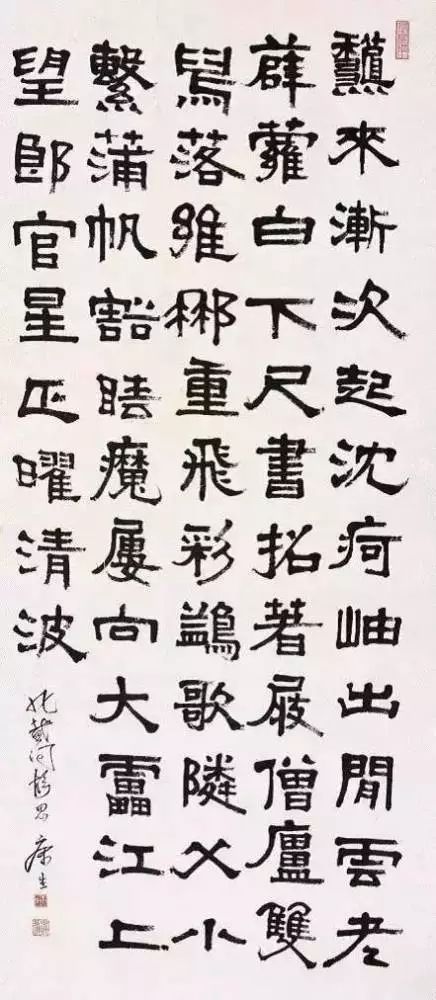 來漸次起沈疴岫出閒雲老
薜蘿白下尺書招著屐僧廬雙
舄落維重飛彩鷁歌隣父小
繫蒲帆豁睡魔屢向大靁江上
望郎官星正曜清波
北戴河 康生